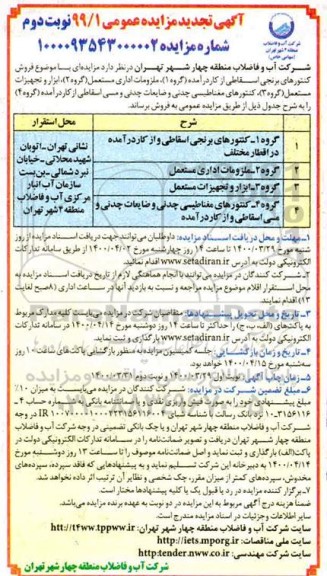 آگهی تجدید مزایده عمومی ۹۹/۱ نوبت دوم
شماره مزایده ۱۰۰۰۰۹۳۵۴۳۰۰۰۰۰۲
شرکت آب و فاضلاب
منطقه ۴ شهر تهران
(سهامی خاص)
شرکت آب و فاضلاب منطقه چهار شهر تهران در نظر دارد مزایده‌ای با موضوع فروش
کنتورهای برنجی اسقاطی از کاردرآمده (گروه۱)، ملزومات اداری مستعمل (گروه۲)، ابزار و تجهیزات
مستعمل (گروه۳)، کنتورهای مغناطیسی چدنی و ضایعات چدنی و مسی اسقاطی از کاردرآمده (گروه۴)
را به شرح جدول ذیل از طریق مزایده عمومی به فروش برساند.
شرح
محل استقرار
۱
گروه۱-کنتورهای برنجی اسقاطی و از کاردرآمده
در اقطار مختلف
۲
گروه۲-ملزومات اداری مستعمل
۳
گروه۳-ابزار و تجهیزات مستعمل
۴
گروه۴-کنتورهای مغناطیسی چدنی و ضایعات چدنی و
مسی اسقاطی و از کاردرآمده
نشانی تهران-اتوبان
شهید محلاتی-خیابان
نبرد شمالی-بن‌بست
سازمان آب انبار
مرکزی آب و فاضلاب
منطقه۴ شهر تهران
۱-مهلت و محل دریافت اسناد مزایده: داوطلبان می‌توانند جهت دریافت اسناد مزایده از روز
شنبه مورخ ۱۴۰۰/۰۳/۲۹ تا ساعت ۱۴ روز چهارشنبه مورخ ۱۴۰۰/۰۴/۰۲ از طریق سامانه تدارکات
الکترونیکی دولت به آدرس www.setadiran.ir اقدام نمایند.
۲-شرکت کنندگان در مزایده می‌توانند با انجام هماهنگی لازم از تاریخ دریافت اسناد مزایده به
محل استقرار اقلام موضوع مزایده مراجعه و نسبت به بازدید آنها در ساعت اداری (۸صبح لغایت
۱۳) اقدام نمایند.
۳-تاریخ و محل تحویل پیشنهادها: متقاضیان شرکت در مزایده می‌بایست کلیه مدارک مربوط
به پاکت‌های (الف،ب،ج) را حداکثر تا ساعت ۱۴ روز دوشنبه مورخ ۱۴۰۰/۰۴/۱۴ در سامانه تدارکات
الکترونیکی دولت به آدرس www.setadiran.ir بارگذاری و ثبت نمایند.
۴-تاریخ و زمان بازگشایی: جلسه کمیسیون مزایده به منظور بازگشایی پاکت‌های ساعت ۱۰ روز
سه‌شنبه مورخ ۱۴۰۰/۰۴/۱۵ خواهد بود.
۵-زمان چاپ آگهی: نوبت اول ۱۴۰۰/۰۳/۲۹ نوبت دوم ۱۴۰۰/۰۳/۳۰
۶-مبلغ تضمین شرکت در مزایده: شرکت کنندگان در مزایده می‌بایست به میزان ۱۰٪
مبلغ پیشنهادی خود را به صورت فیش واریزی نقدی و یا ضمانتنامه بانکی
شرکت آب و فاضلاب منطقه چهار شهر تهران و یا چک بانکی تضمینی در وجه شرکت آب و فاضلاب
منطقه چهار شهر تهران دریافت و تصویر ضمانت‌نامه را در سامانه تدارکات الکترونیکی دولت در
پاکت(الف) بارگذاری و ثبت نماید و اصل ضمانت‌نامه موصوف را تا ساعت ۱۳ روز دوشنبه مورخ
۱۴۰۰/۰۴/۱۴ به دبیرخانه این شرکت تسلیم نماید و به پیشنهادهایی که فاقد سپرده، سپرده‌های
مخدوش، سپرده‌های کمتر از میزان مقرر، چک شخصی و نظایر آن ترتیب اثر داده نخواهد شد.
۷-برگزار کننده مزایده در رد یا قبول یک یا کلیه پیشنهادها مختار است.
ضمنا هزینه درج آگهی مربوط به این مزایده در دو نوبت به عهده برنده مزایده می‌باشد.
سایر اطلاعات و جزئیات در اسناد مزایده مندرج است.
سایت شرکت آب و فاضلاب منطقه چهار شهر تهران: htt://t4ww.tppww.ir
سایت ملی مناقصات: http://iets.mporg.ir
سایت شرکت مهندسی: http:tender.nww.co.ir
شرکت آب و فاضلاب منطقه چهار شهر تهران